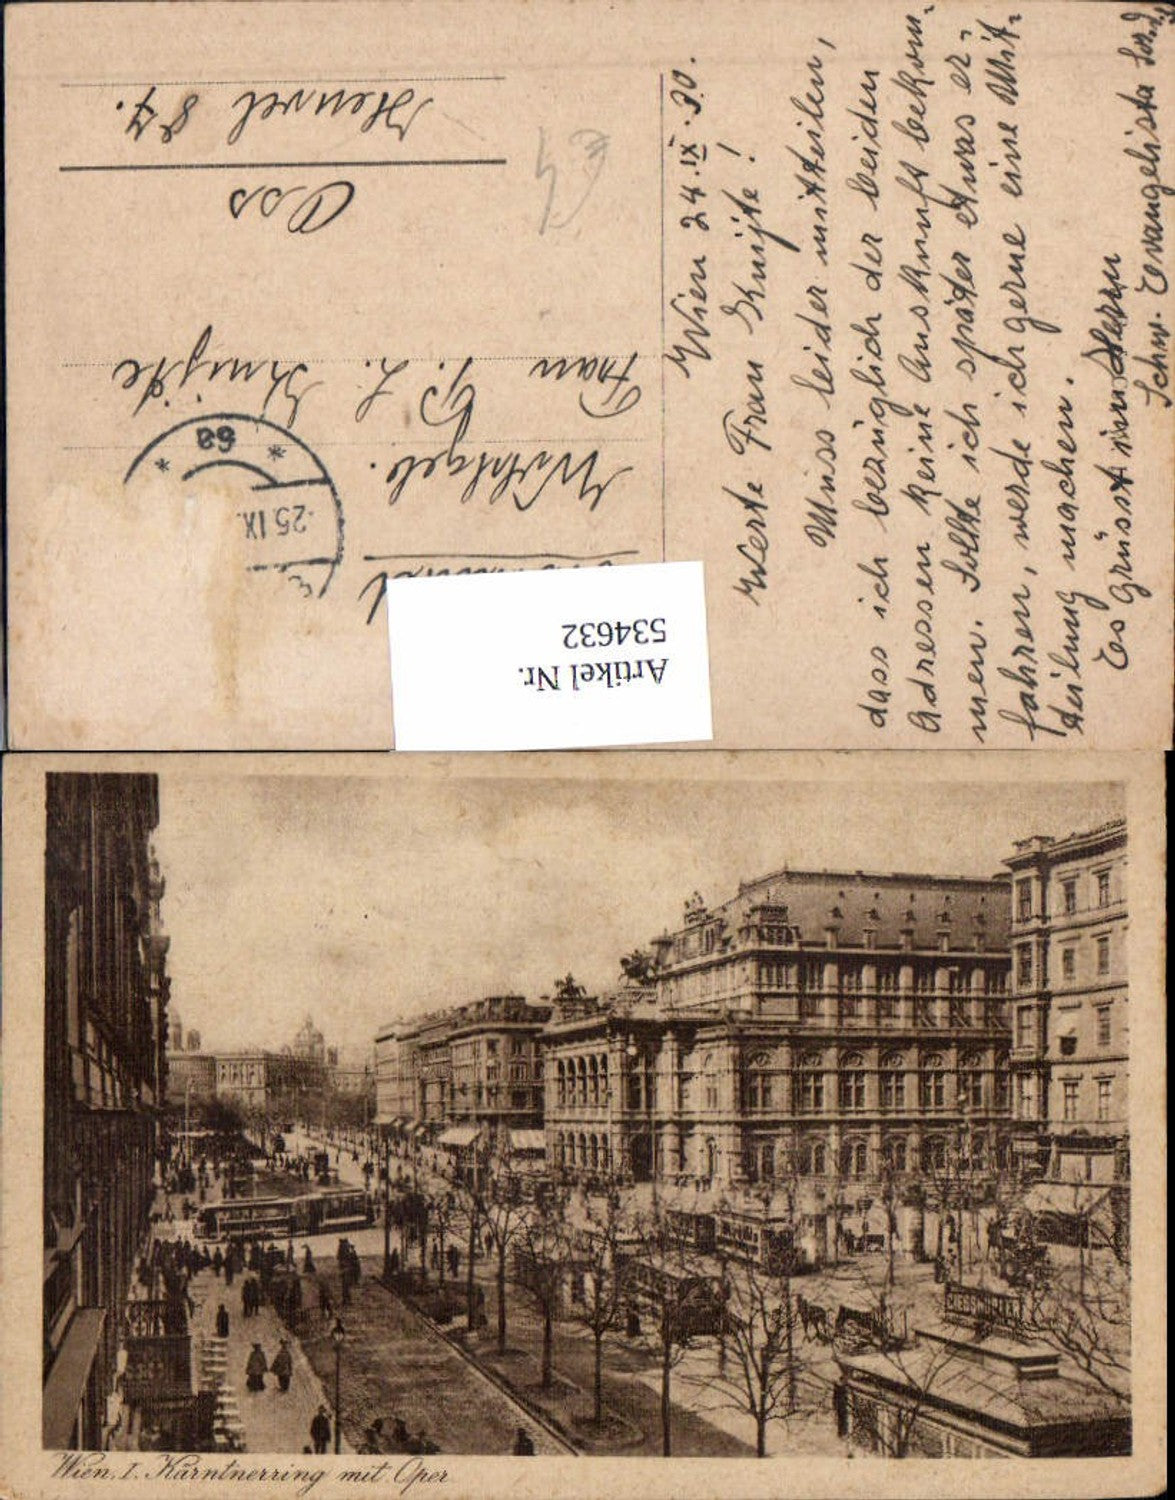 Wien 24.IX.30.
Werte Frau Knijte!
Muss leider mitteilen,
dass ich bezüglich der beiden
Adressen keine Auskunft bekom-
men. Sollte ich später etwas er-
fahren, werde ich gerne eine Mit-
teilung machen.
Es grüsst im Herrn
Schw. Evangelista
Wohlgeb.
Frau G. L. Knijte
Oss
Heuvel 87.
25.IX.
* 68 *
€4
Artikel Nr.
534632
Wien, I. Kärntnerring mit Oper